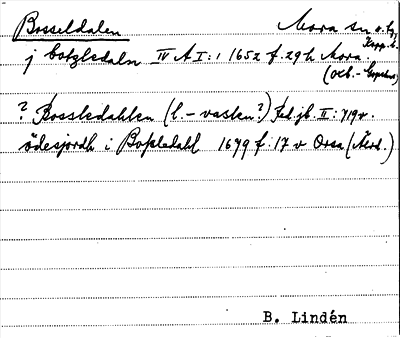 Bosseldalen Mora sn o. tg,
Kopp. l.
j botzledaln IV A I:1 1652 f. 29 h Mora.
(och.-
? Bossledahlen (l.-vaslen?) Jfd. jb. II: 719 v.
ödesjordh i Bossledahl 1679 f: 17 v Orsa (Åerd.)
B. Lindén